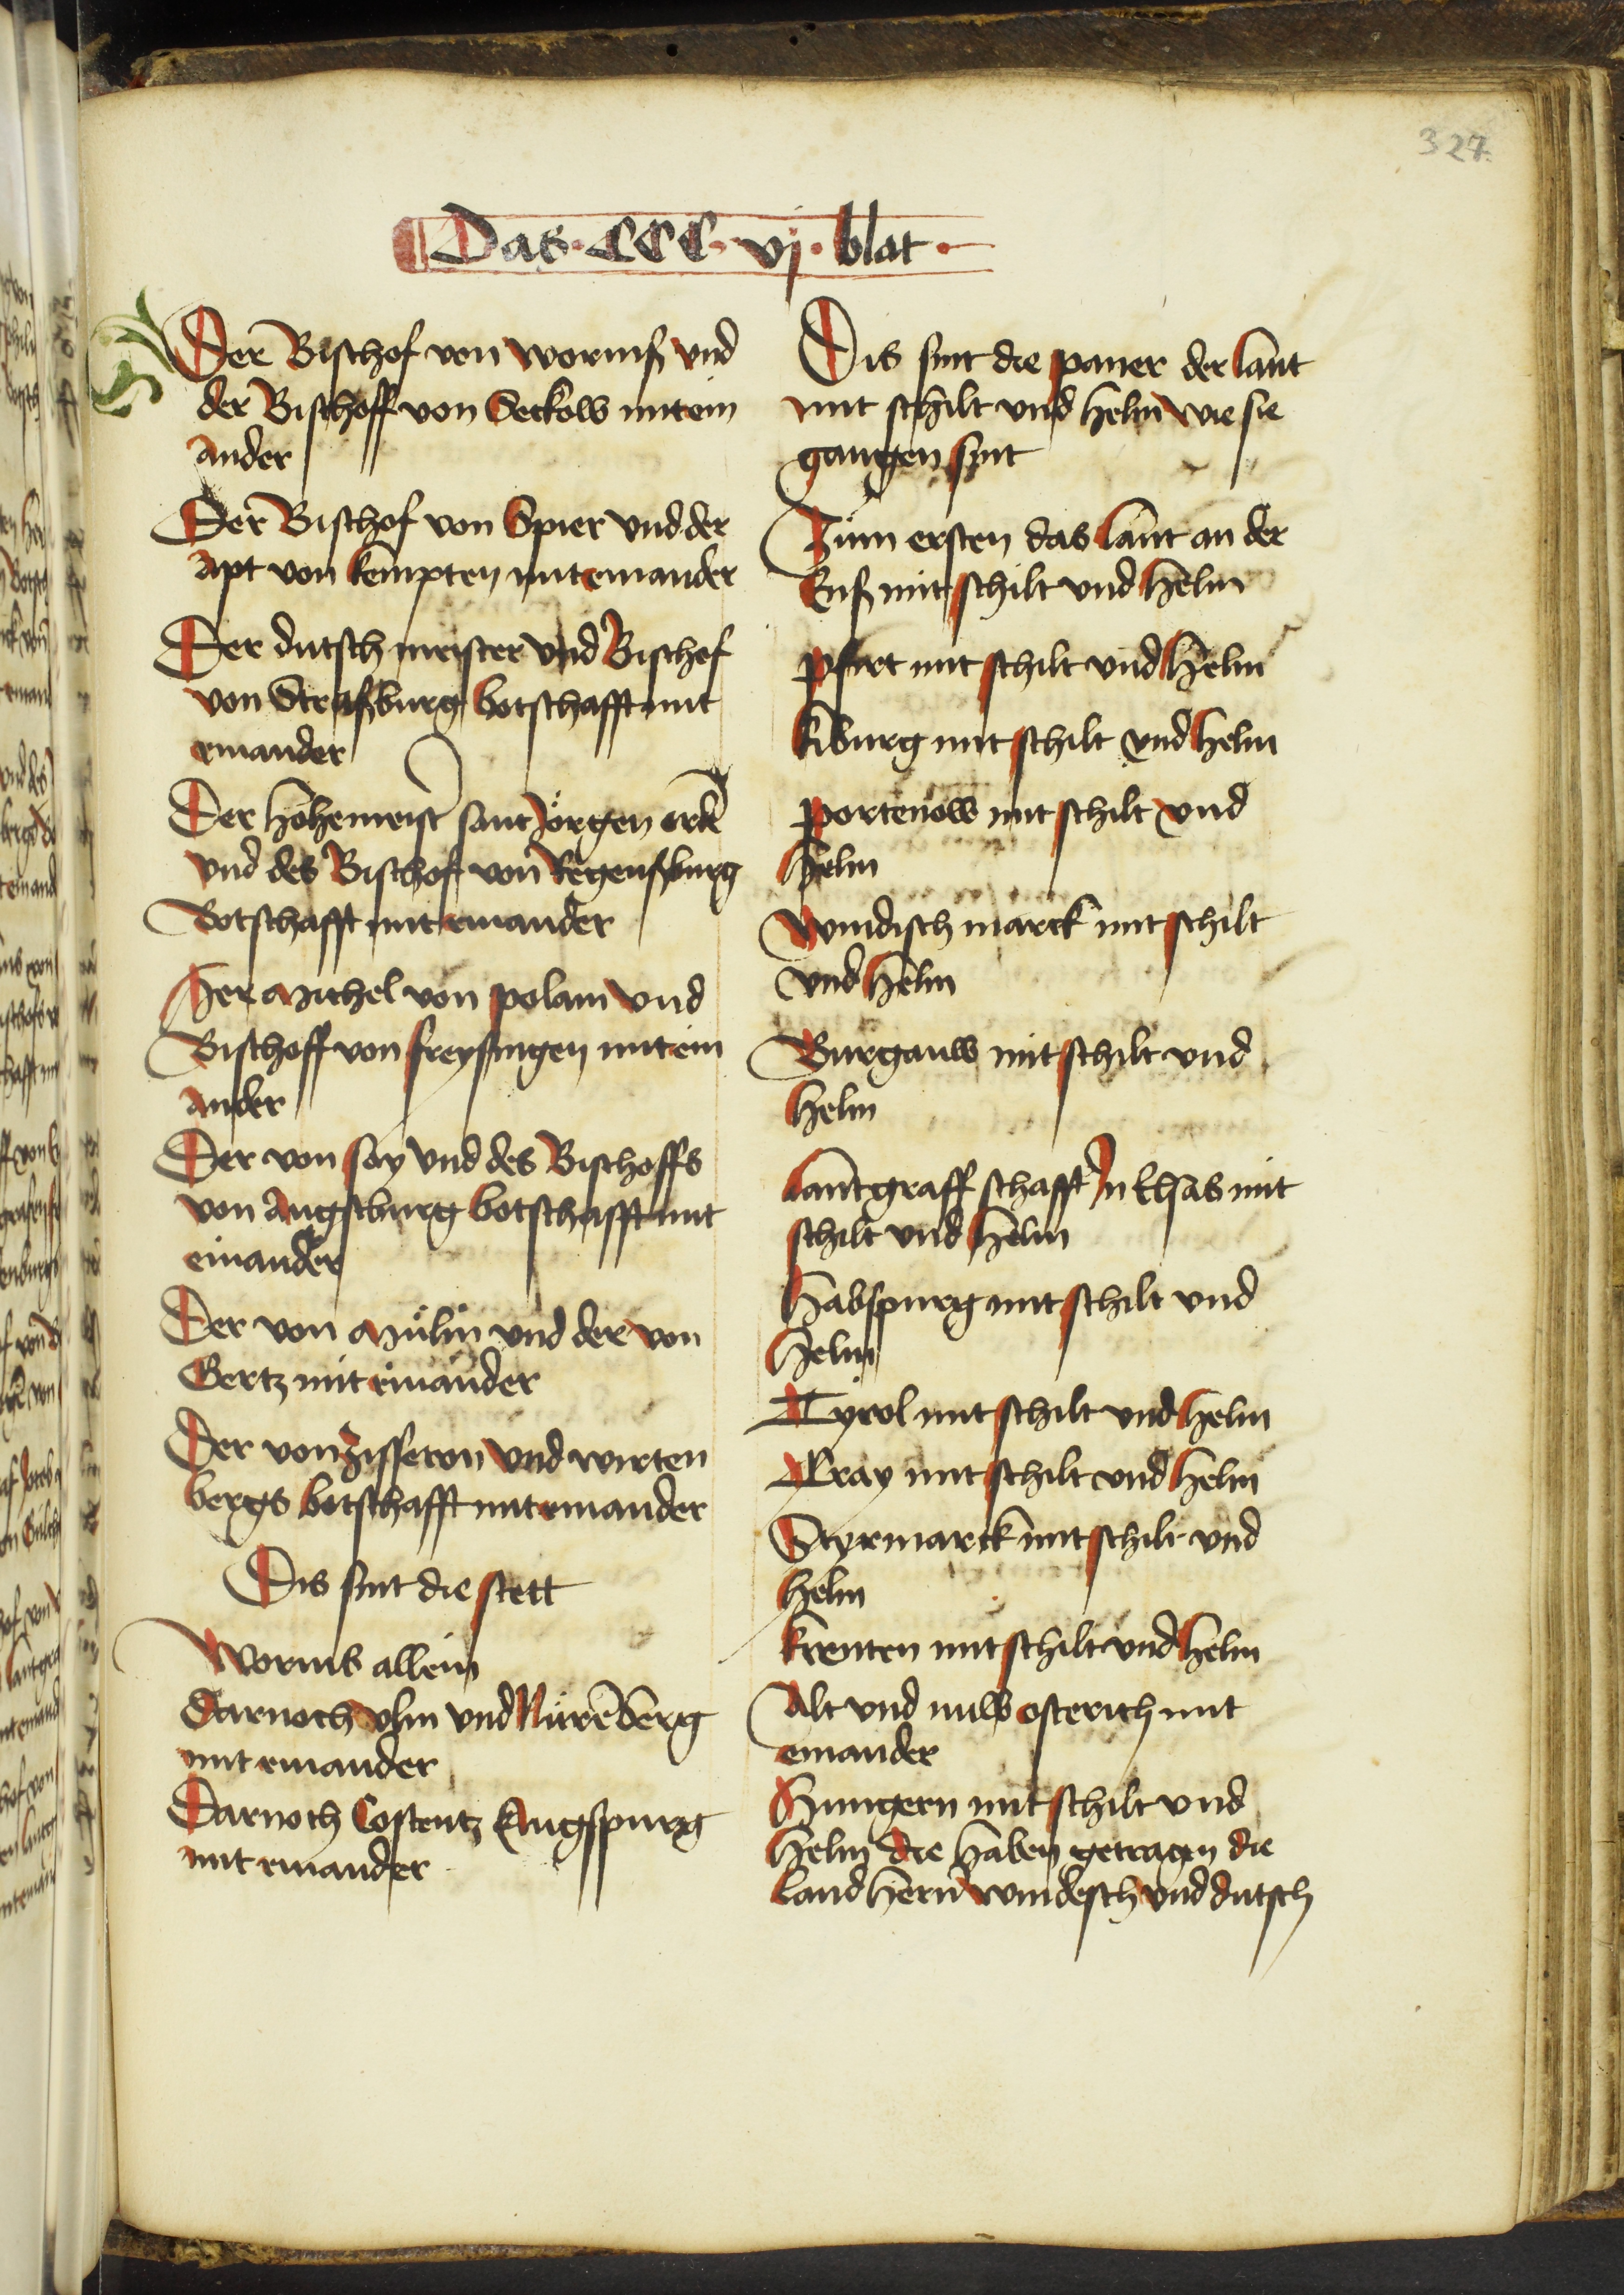 327
Das · CCC · vj · blat ·
Der Bischof von wormß vnd
der Bischoff von Seckow mit ein
ander
Der Bischof von Spier vnd der
apt von kempten mit einander
Der dutsch meister vnd Bischof
von Straßburg botschafft mit
einander
Der hohemeist sant Jörgen ord
vnd des Bischof von Regenßburg
Botschafft mit einander
Her Michel von polam vnd
Bischoff von freysingen mit ein
ander
Der von say vnd des Bischoffs
von Augsburg botschafft mit
einander
Der von Mülin vnd der von
Gertz mit einander
Der von Zisseron vnd wirten
bergs botschafft mit einander
Dis sint die stett
Worms allein
Darnoch vlm vnd Nürēberg
mit einander
Darnoch Costentz Augspurg
mit einander
Dis sint die paner der lant
mit schilt vnd helm wie sie
gangen sint
Zům ersten das lant an der
Enß mit schilt vnd helm
Pfirt mit schilt vnd helm
kiburg mit schilt vnd helm
Portenow mit schilt vnd
helm
Windisch marck mit schilt
vnd helm
Burgauw mit schilt vnd
helm
lantgraffschafft Jn Elsas mit
schilt vnd helm
Habspurg mit schilt vnd
helm
Tyrol mit schilt vnd helm
Kray mit schilt vnd helm
Styrmarck mit schilt vnd
helm
kernten mit schilt vnd helm
Alt vnd nuw osterich mit
einander
Hungern mit schilt vnd
helm die haben getragen die
landhern windesch vnd dutsch